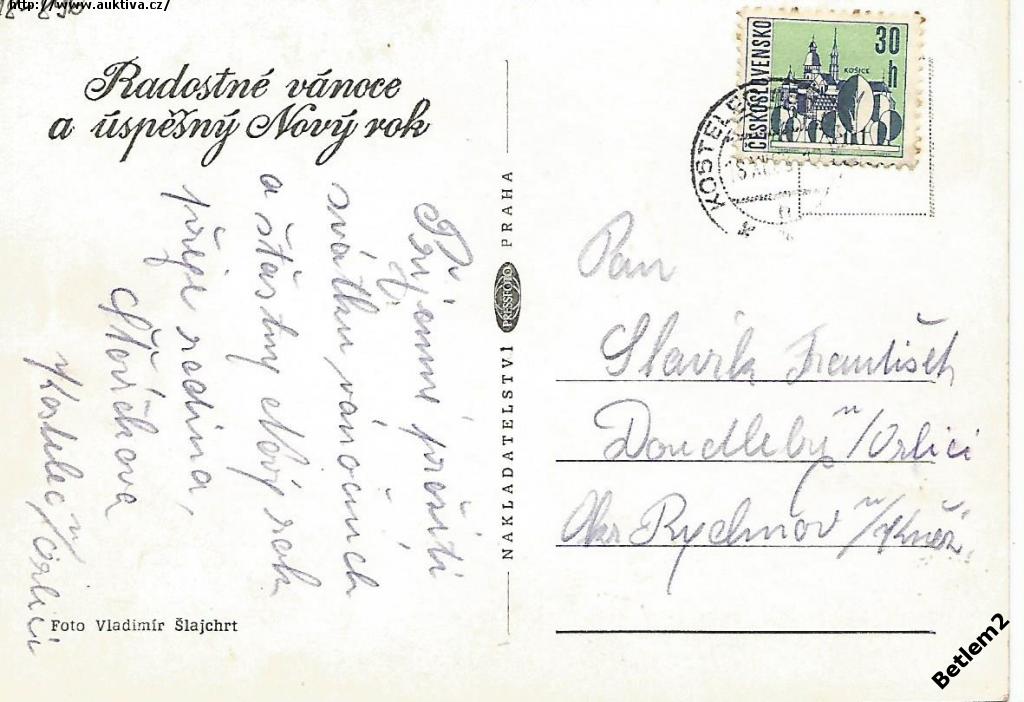 http://www.auktiva.cz/
Radostné vánoce
a úspěšný Nový rok
Příjemné prožití
svátků vánočních
a šťastný Nový rok
přeje rodina,
v Kostelec n/Orlicí
Foto Vladimír Šlajchrt
NAKLADATELSTVÍ PRESSFOTO PRAHA
ČESKOSLOVENSKO
30
h
KOŠICE
KOSTELEC
Pan
Slavík František
Doudleby n/Orlicí
Okr Rychnov n/Kněž.
Betlem2